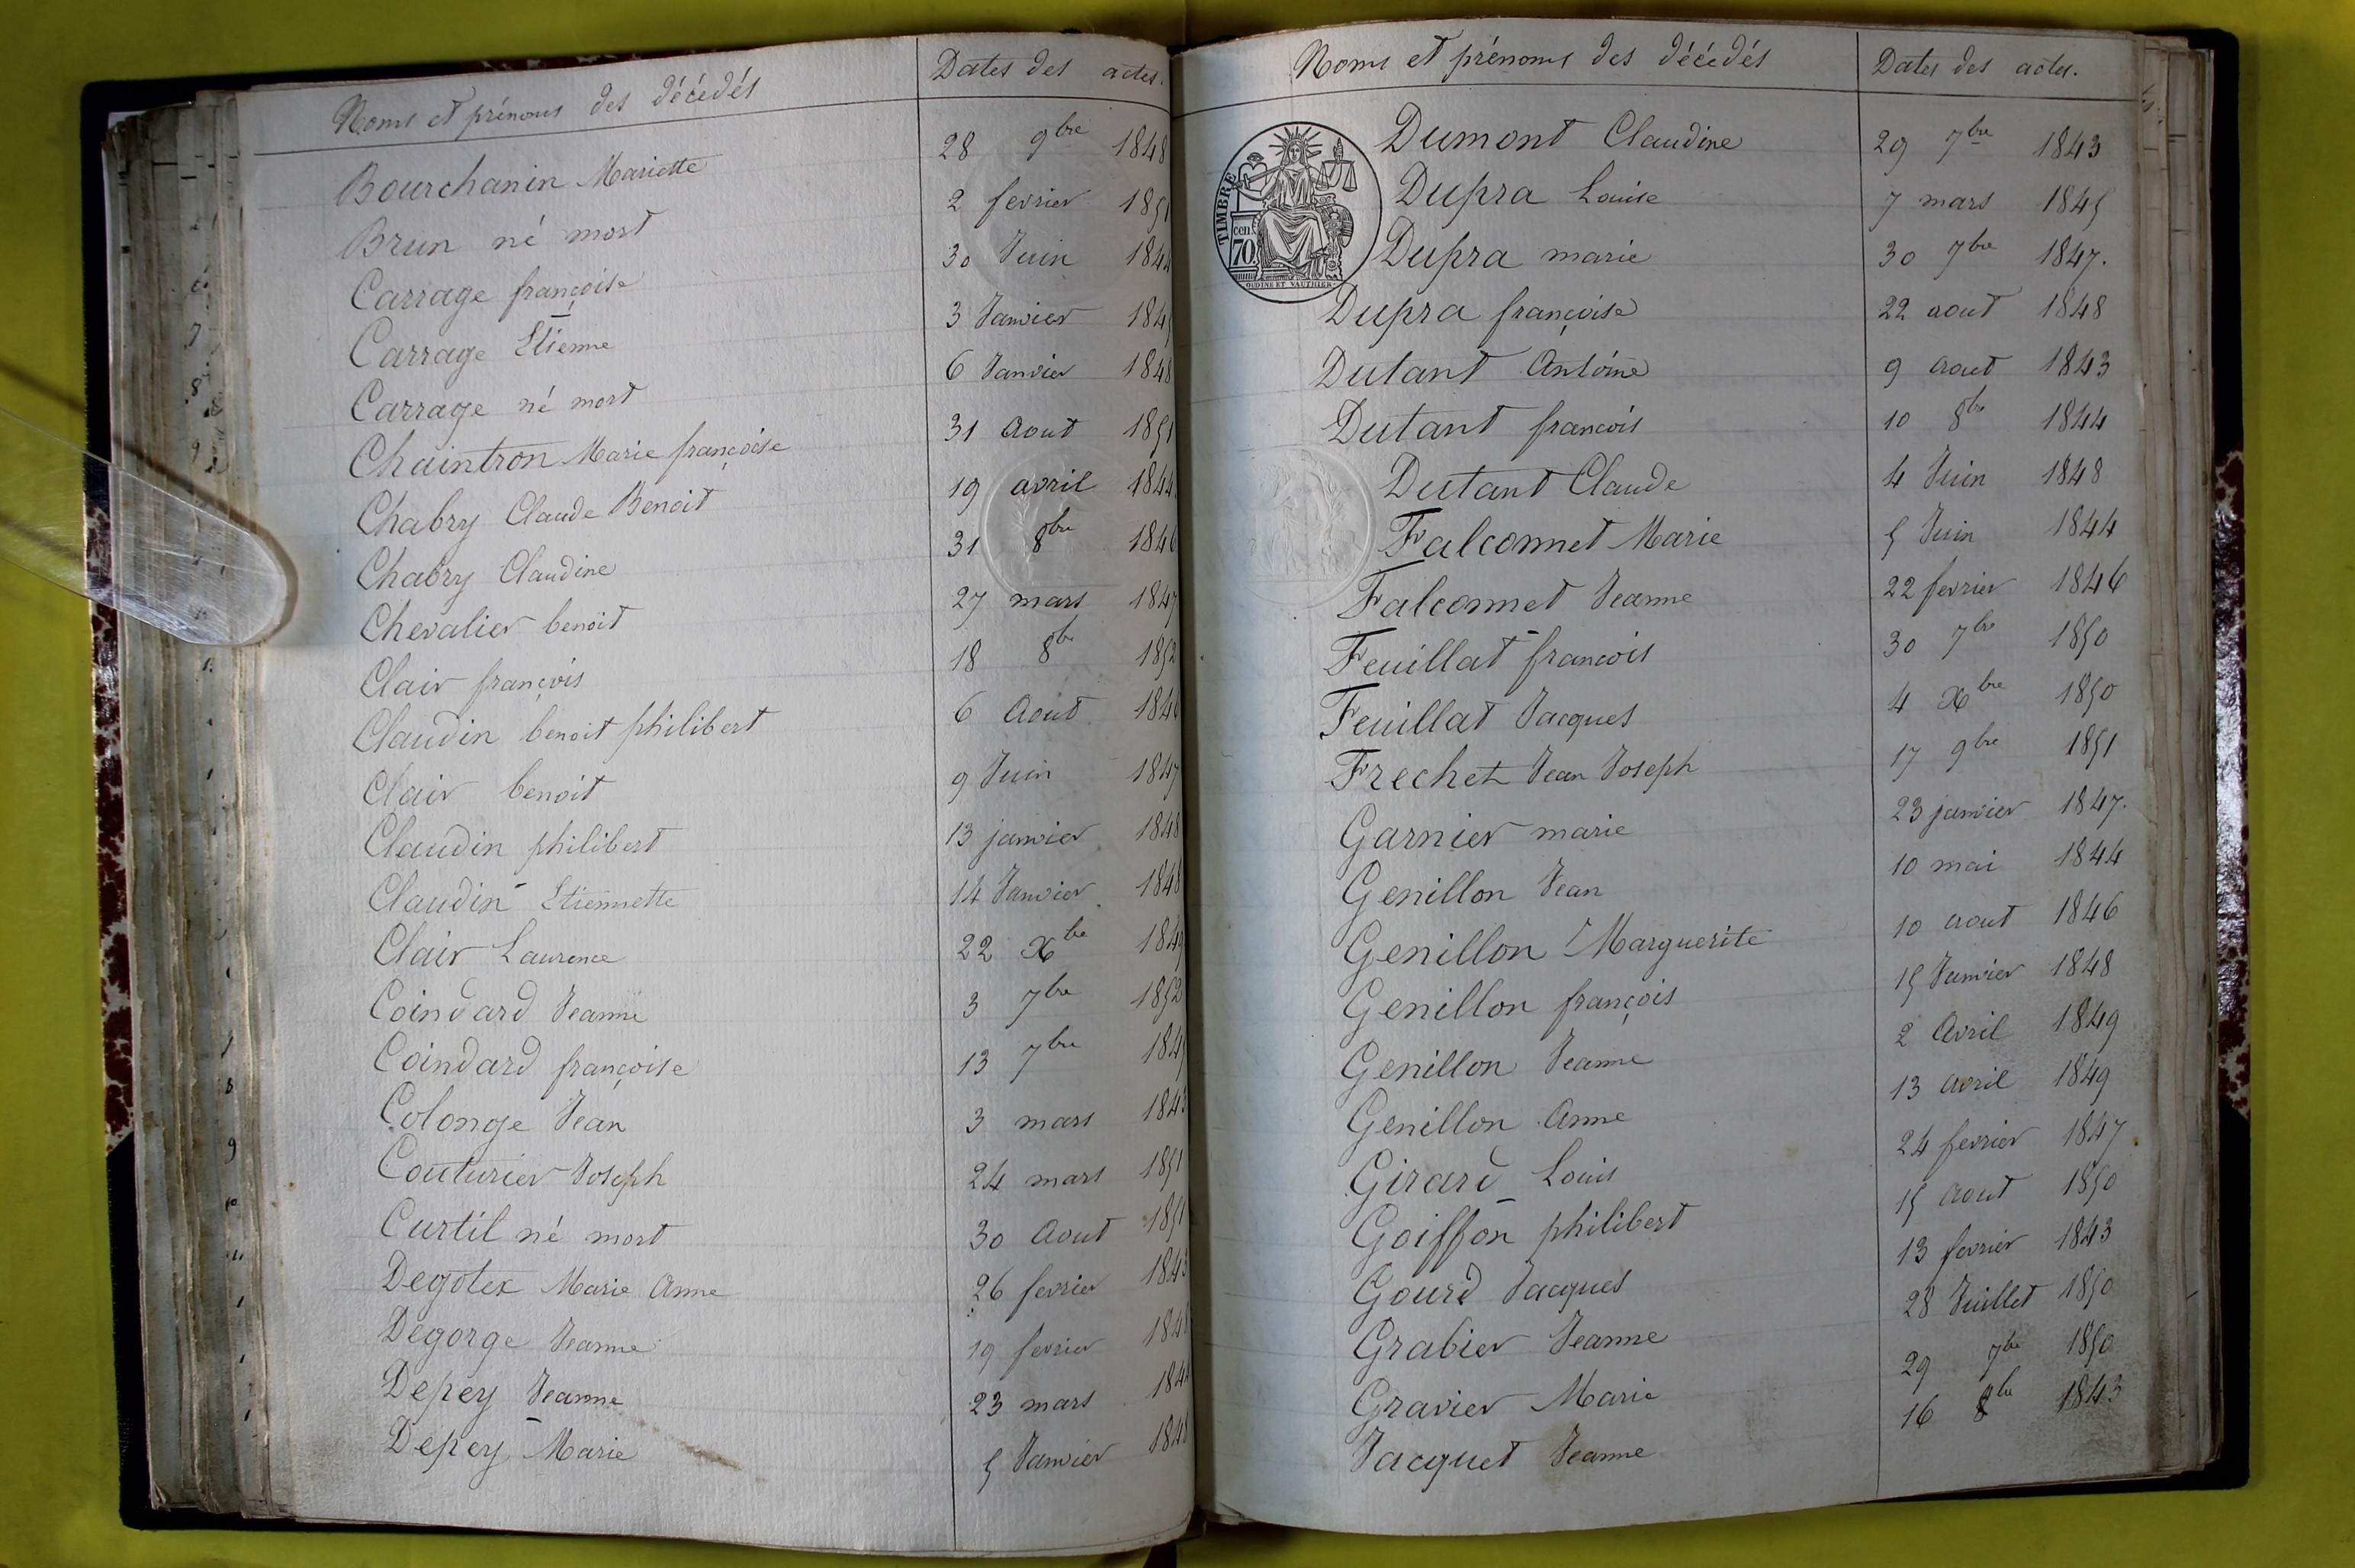 Noms et prénoms des décédés Dates des actes.
Bourchanin Mariette 28 9bre 1848
Brun né mort 2 fevrier 1851
Carrage françoise 30 Juin
Carrage Etienne 3 Janvier
Carrage né mort 6 Janvier 1848
Chaintron Marie françoise 31 Aout 1851
Chabry Claude Benoit 19 avril 1844
Chabry Claudine 31 8bre 1846
Chevalier benoit 27 mars 1847
Clair françois 18 8bre 1852
Claudin benoit philibert 6 Aout 1846
Clair benoit 9 Juin 1847
Claudin philibert 13 janvier 1848
Claudin Etiennette 14 Janvier 1848
Clair Laurence 22 Xbre 1849
Coindard Jeanne 3 7bre 1852
Coindard françoise 13 7bre
Colonge Jean 3 mars 1843
Couturier Joseph 24 mars 1851
Curtil né mort 30 Aout 1851
Degotex Marie Anne 26 fevrier 1843
Degorge Jeanne 19 fevrier
Depey Jeanne 23 mars
Depey Marie 5 Janvier 1848
Noms et prénoms des décédés Dates des actes.
TIMBRE
cen.
70
OUDINE ET VAUTHIER
Dumont Claudine 29 7bre 1843
Dupra Louise 7 mars 1845
Dupra marie 30 7bre 1847.
Dupra françoise 22 aout 1848
Dutant Antoine 9 aout 1843
Dutant francois 10 8bre 1844
Dutant Claude 4 Juin 1848
Falconnet Marie 5 Juin 1844
Falconnet Jeanne 22 fevrier 1846
Feuillat francois 30 7bre 1850
Feuillat Jacques 4 Xbre 1850
Frechet Jean Joseph 17 9bre 1851
Garnier marie 23 janvier 1847.
Genillon Jean 10 mai 1844
Genillon Marguerite 10 aout 1846
Genillon françois 15 Janvier 1848
Genillon Jeanne 2 Avril 1849
Genillon Anne 13 avril 1849
Girard Louis 24 fevrier 1847
Goiffon philibert 15 aout 1850
Gourd Jacques 13 fevrier 1843
Grabier Jeanne 28 Juillet 1850
Gravier Marie 29 7bre 1850
Jacquet Jeanne 16 8bre 1843